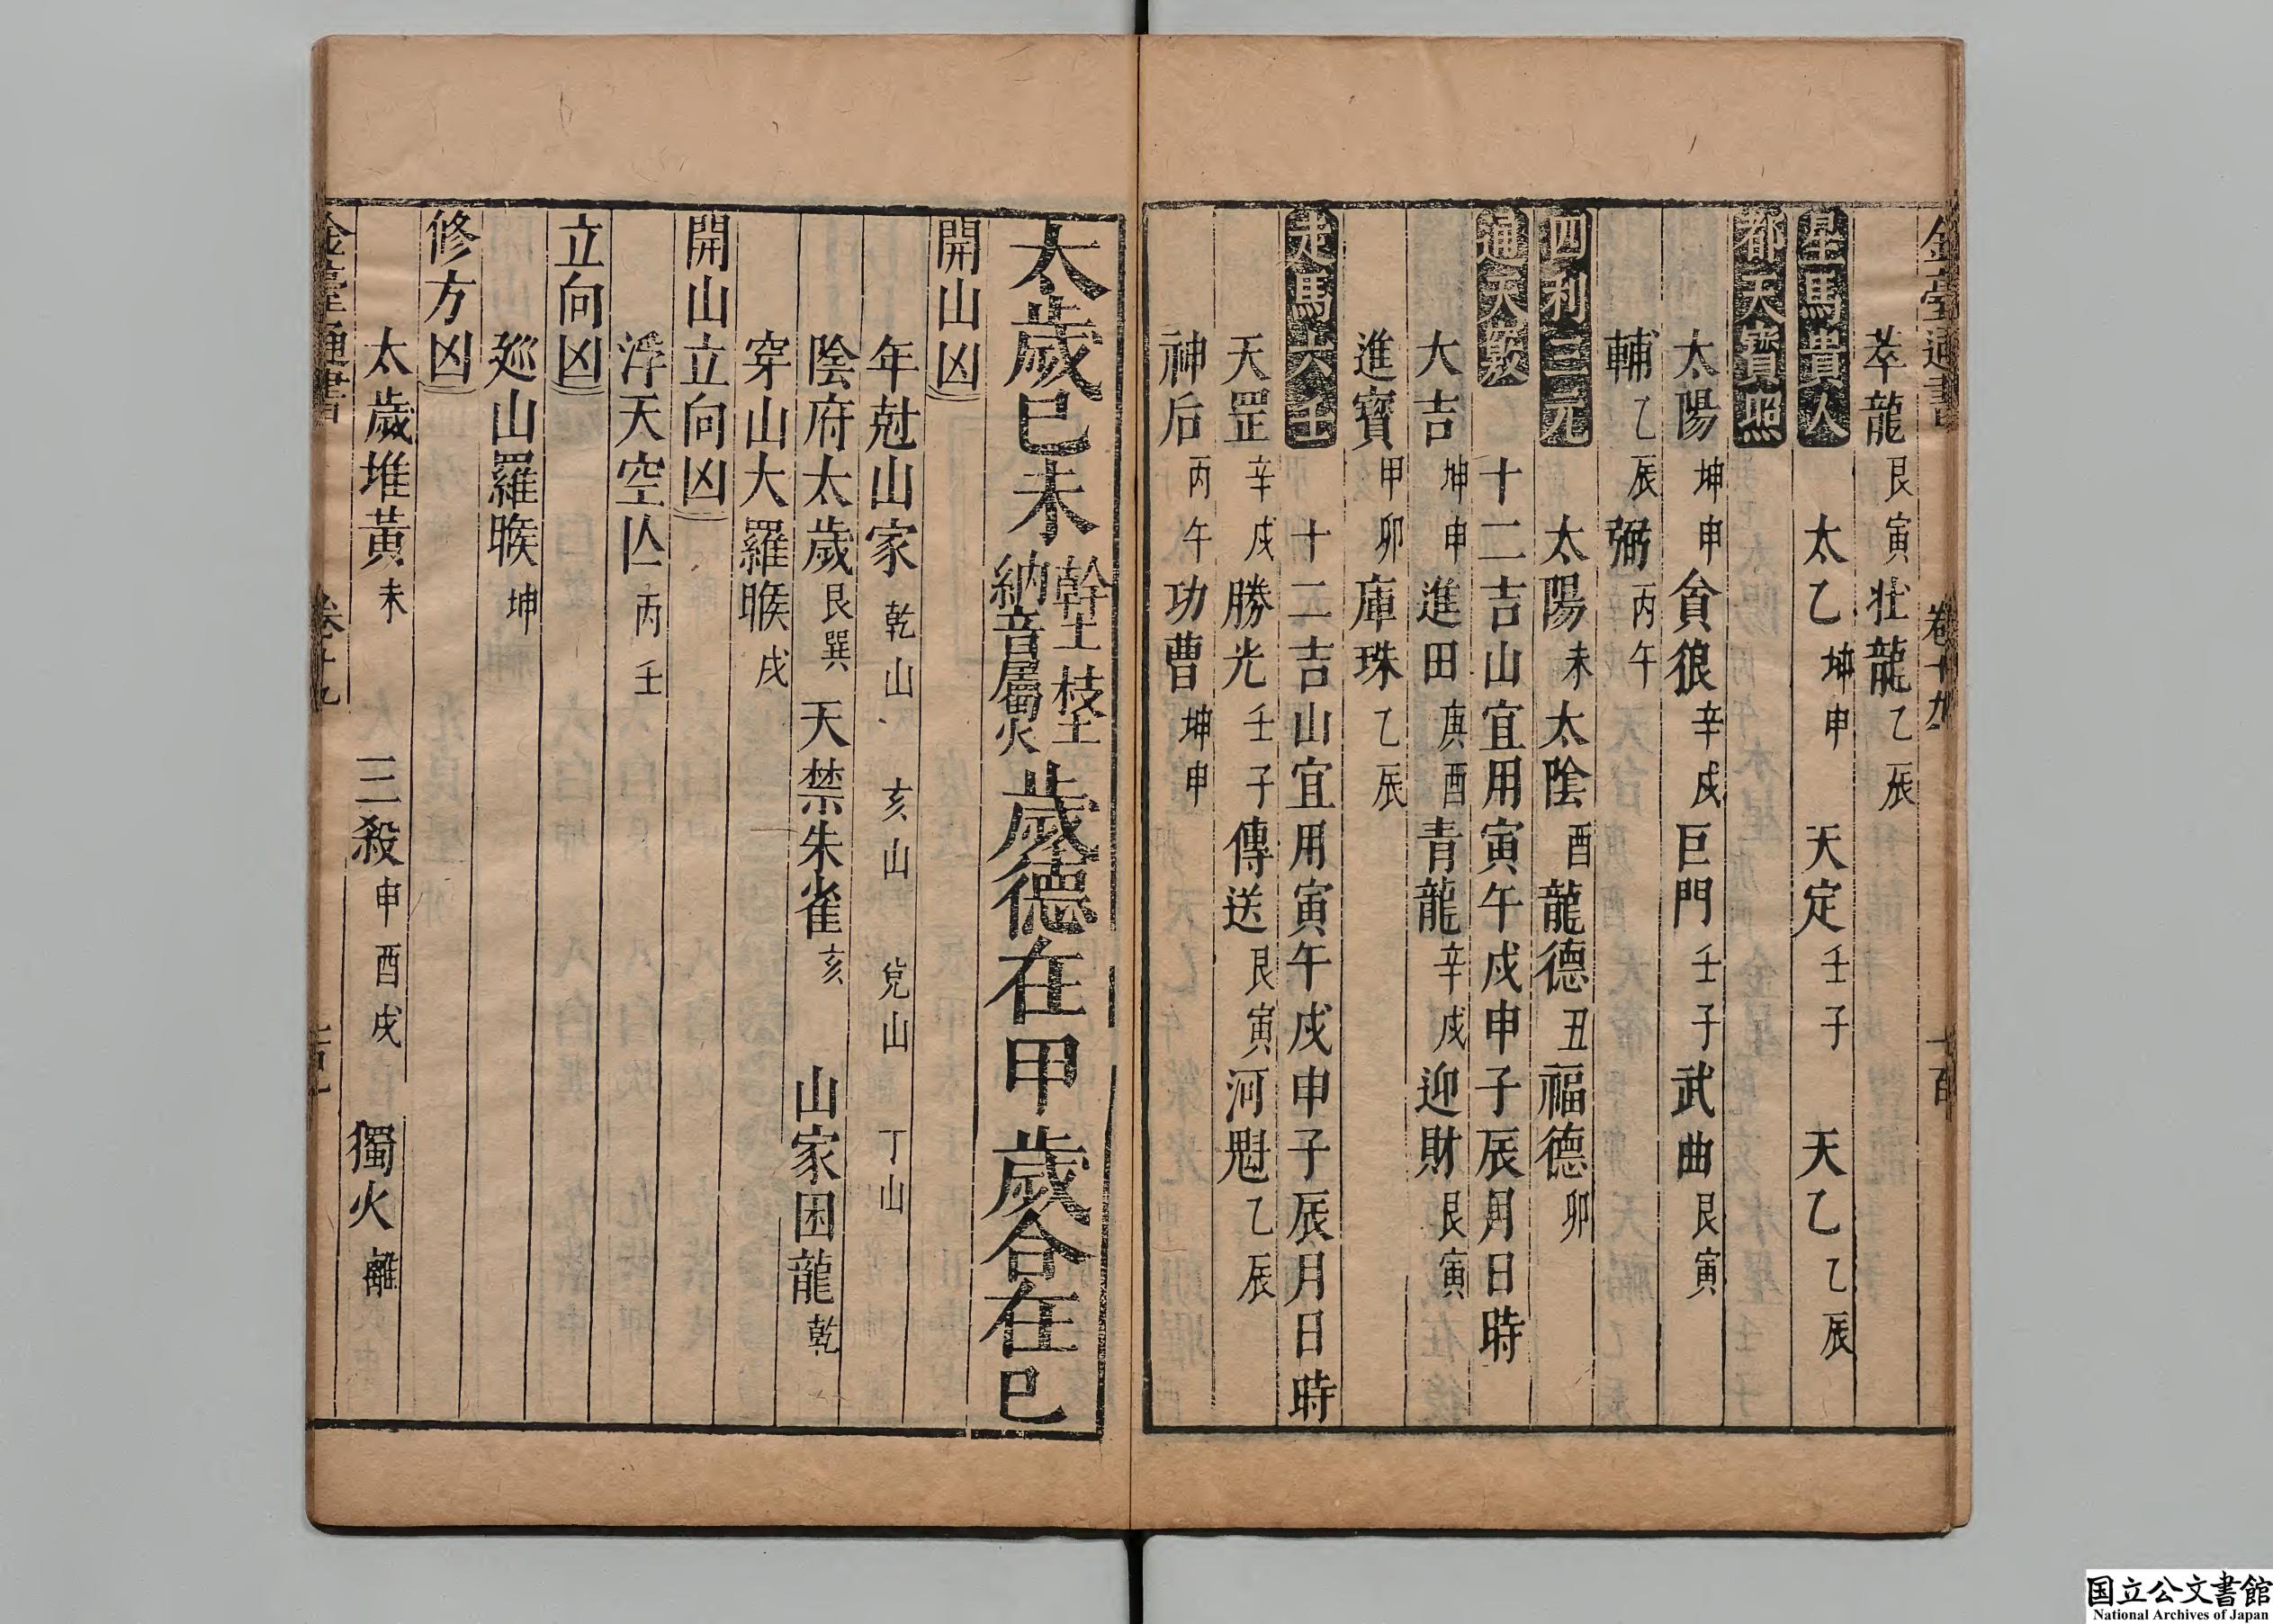 金臺通書 卷十九
萃龍艮寅壯龍乙辰
星馬貴人 太乙坤申 天定壬子 天乙乙辰
都天寶照
太陽坤申貪狼辛戌巨門壬子武曲艮寅
輔乙辰弼丙午
四利三元 太陽未太陰酉龍德丑福德卯
通天竅 十二吉山宜用寅午戌申子辰月日時
大吉坤申進田庚酉青龍辛戌迎財艮寅
進寶甲卯庫珠乙辰
走馬六壬 十二吉山宜用寅午戌申子辰月日時
天罡辛戌勝光壬子傳送艮寅河魁乙辰
神后丙午功曹坤申
太歲己未 幹土枝土 納音屬火 歲德在甲歲合在己
開山凶
年尅山家 乾山 亥山 兌山 丁山
陰府太歲艮巽 天禁朱雀亥 山家困龍乾
穿山大羅睺戌
開山立向凶
浮天空亡丙壬
立向凶
廵山羅睺坤
修方凶
太歲堆黃未 三殺申酉戌 獨火離
金臺通書 卷十九
国立公文書館
National Archives of Japan